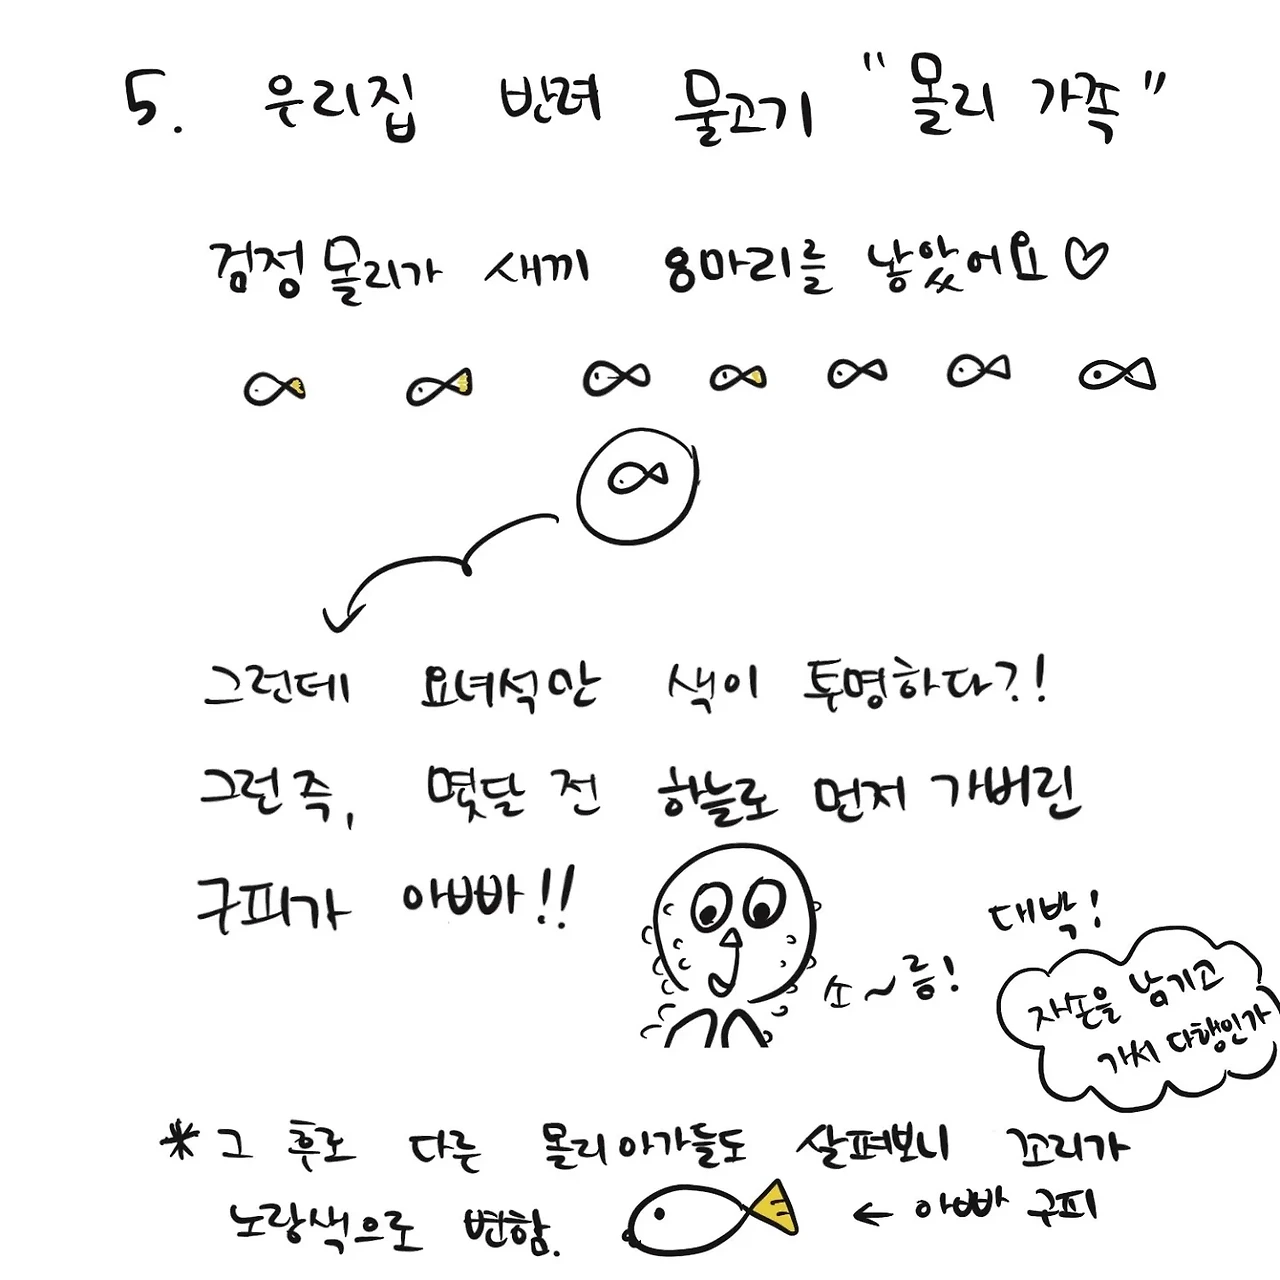 5. 우리집 반려 물고기 "몰리 가족"
검정 몰리가 새끼 8마리를 낳았어요♡
그런데 요녀석만 색이 투명하다?!
그런즉, 몇달 전 하늘로 먼저 가버린
구피가 아빠!!
소~름!
대박!
자손을 남기고
가서 다행인가
* 그 후로 다른 몰리아가들도 살펴보니 꼬리가
노랑색으로 변함.
← 아빠 구피